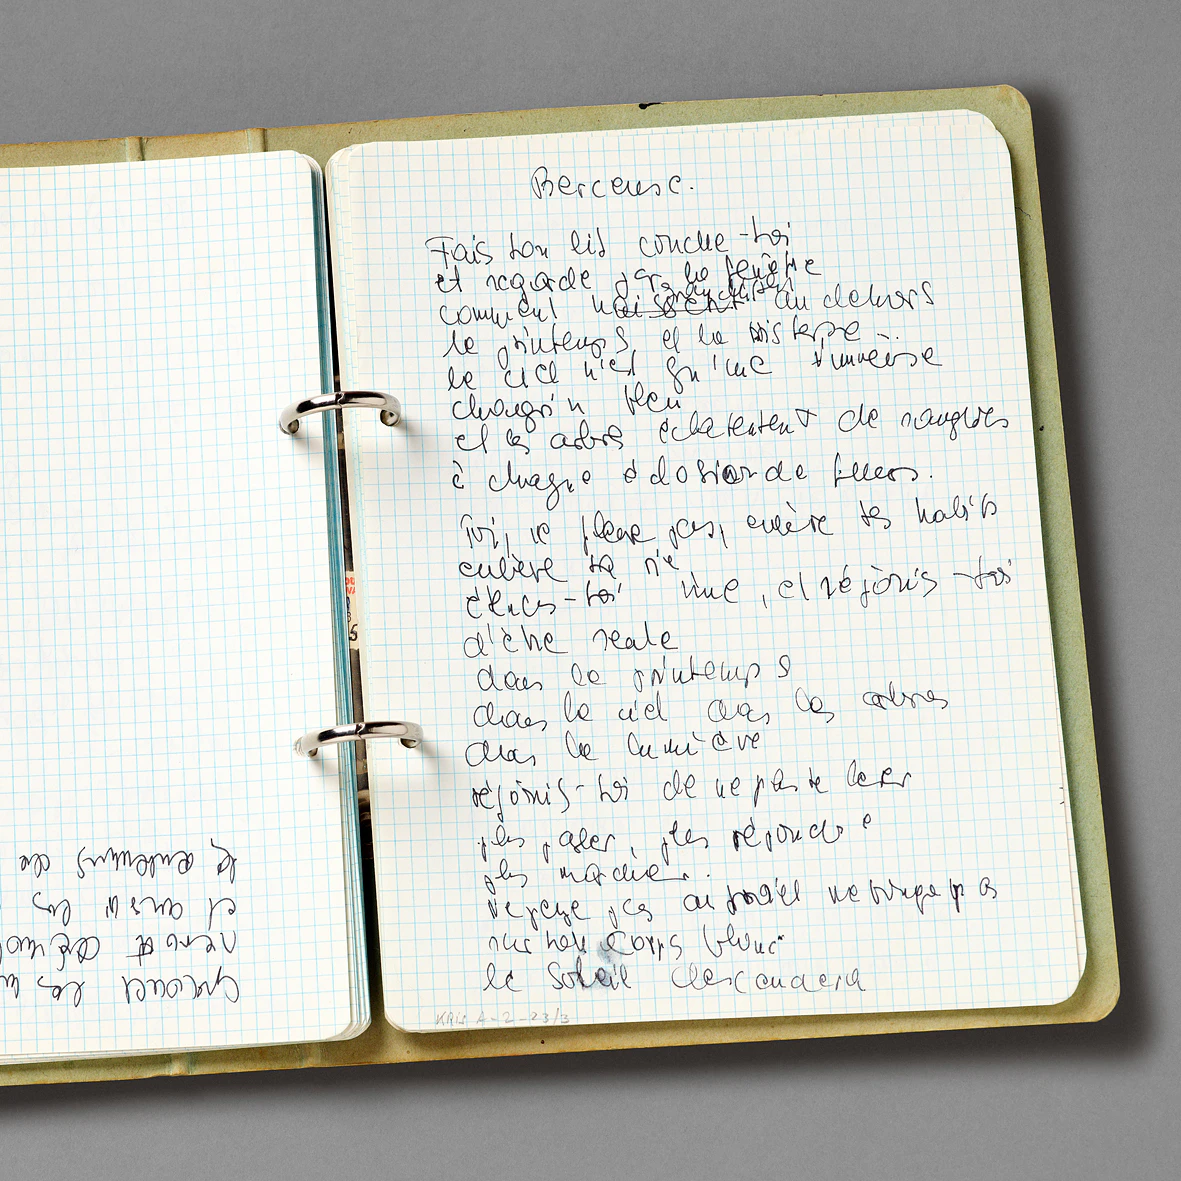 Berceuse.
Fais ton lit couche-toi
et regarde par la fenêtre
grandissent
comment naissent au dehors
le printemps et la tristesse.
le ciel n'est qu'une immense
chagrin bleu
et les arbres éclatent de sanglots
à chaque éclosion de fleurs.
Toi, ne pleure pas, enlève tes habits
enlève ta vie
étends-toi nue, et réjouis-toi
d'être seule
dans le printemps
dans le ciel dans les arbres
dans la lumière
réjouis-toi de ne pas te lever
plus parler, plus répondre
plus marcher.
ne pense pas au soleil ne bouge pas
sur ton corps blanc
le soleil descendera
KRIS A-2-23/3